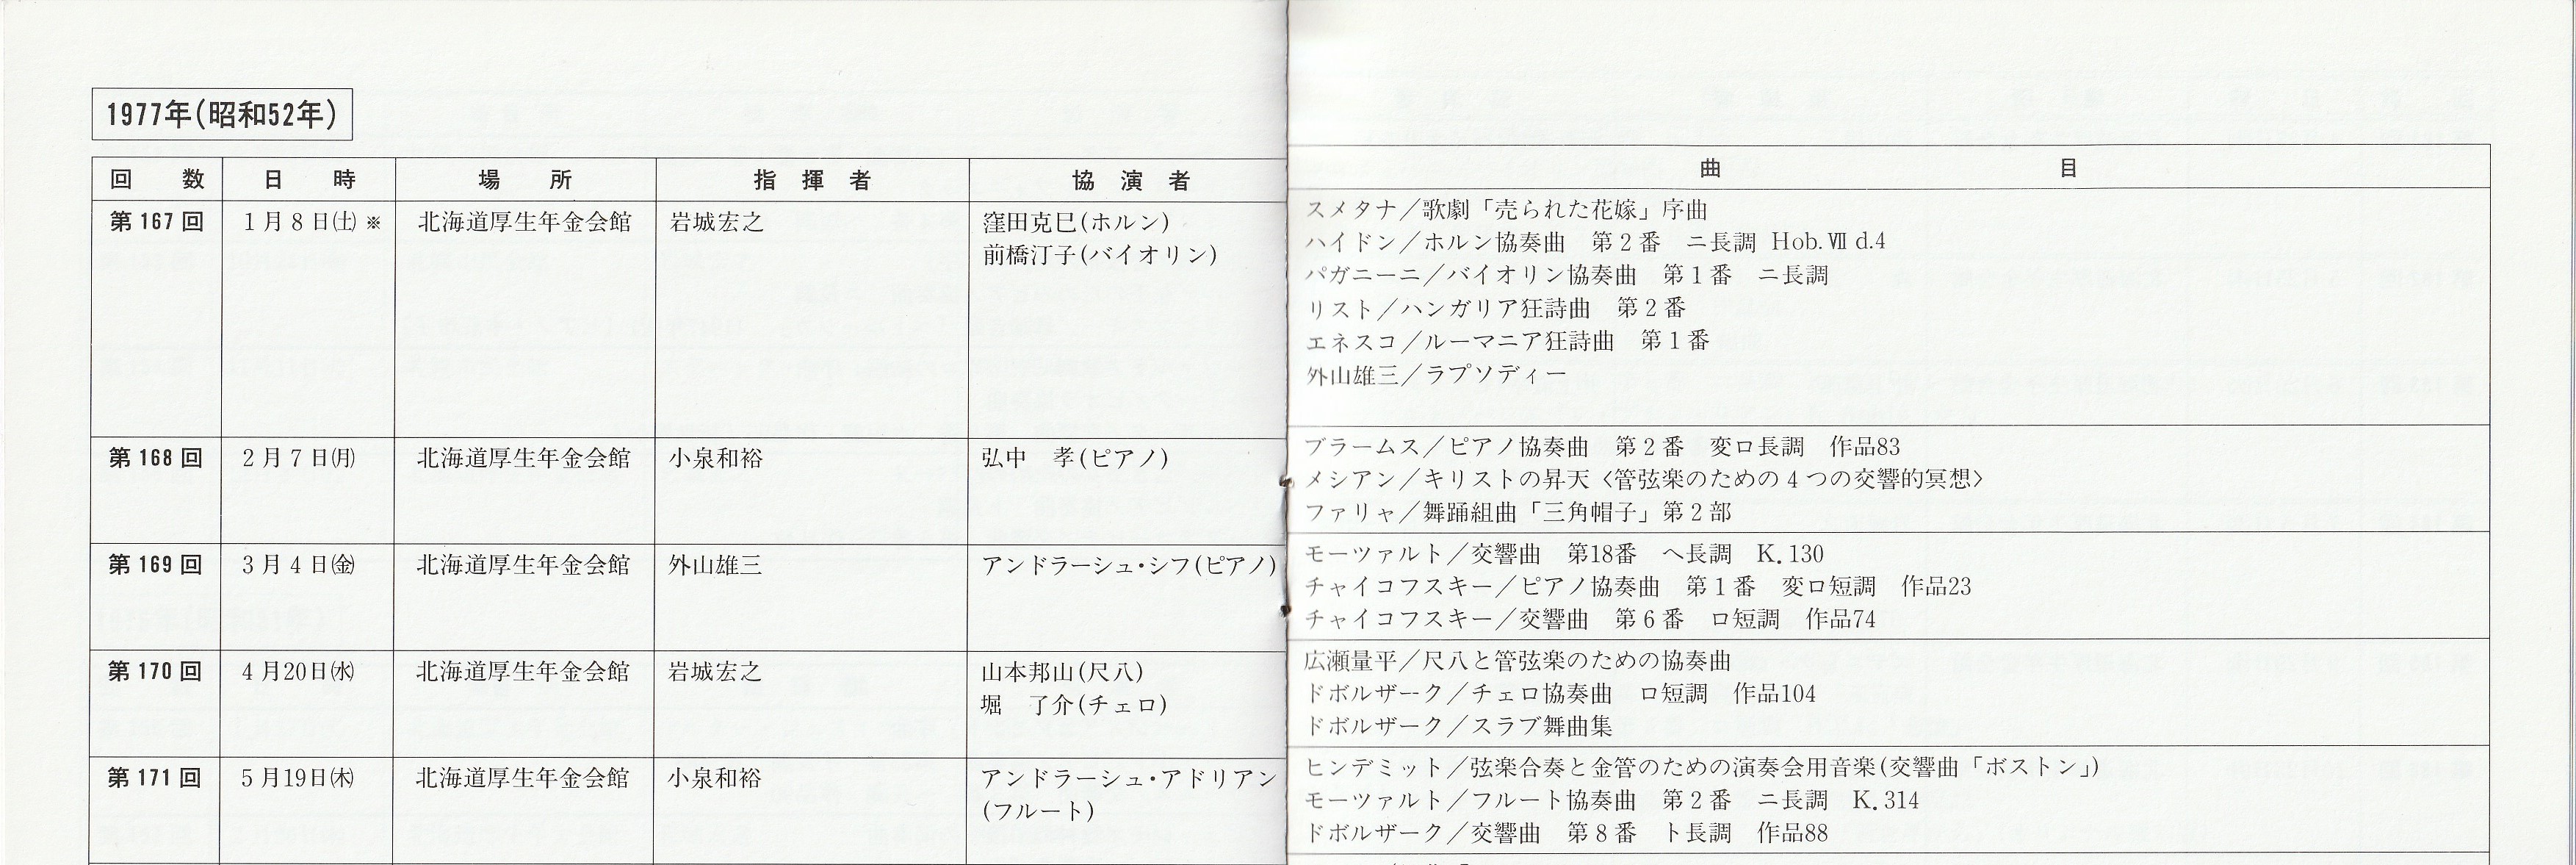 1977年(昭和52年)
回数 日時 場所 指揮者 協演者 曲目
第167回 1月8日(土)※ 北海道厚生年金会館 岩城宏之 窪田克巳(ホルン)
前橋汀子(バイオリン)
スメタナ／歌劇「売られた花嫁」序曲
ハイドン／ホルン協奏曲 第2番 ニ長調 Hob.Ⅶ d.4
パガニーニ／バイオリン協奏曲 第1番 ニ長調
リスト／ハンガリア狂詩曲 第2番
エネスコ／ルーマニア狂詩曲 第1番
外山雄三／ラプソディー
第168回 2月7日(月) 北海道厚生年金会館 小泉和裕 弘中 孝(ピアノ)
ブラームス／ピアノ協奏曲 第2番 変ロ長調 作品83
メシアン／キリストの昇天〈管弦楽のための4つの交響的冥想〉
ファリャ／舞踊組曲「三角帽子」第2部
第169回 3月4日(金) 北海道厚生年金会館 外山雄三 アンドラーシュ・シフ(ピアノ)
モーツァルト／交響曲 第18番 ヘ長調 K.130
チャイコフスキー／ピアノ協奏曲 第1番 変ロ短調 作品23
チャイコフスキー／交響曲 第6番 ロ短調 作品74
第170回 4月20日(水) 北海道厚生年金会館 岩城宏之 山本邦山(尺八)
堀 了介(チェロ)
広瀬量平／尺八と管弦楽のための協奏曲
ドボルザーク／チェロ協奏曲 ロ短調 作品104
ドボルザーク／スラブ舞曲集
第171回 5月19日(木) 北海道厚生年金会館 小泉和裕 アンドラーシュ・アドリアン
(フルート)
ヒンデミット／弦楽合奏と金管のための演奏会用音楽(交響曲「ボストン」)
モーツァルト／フルート協奏曲 第2番 ニ長調 K.314
ドボルザーク／交響曲 第8番 ト長調 作品88